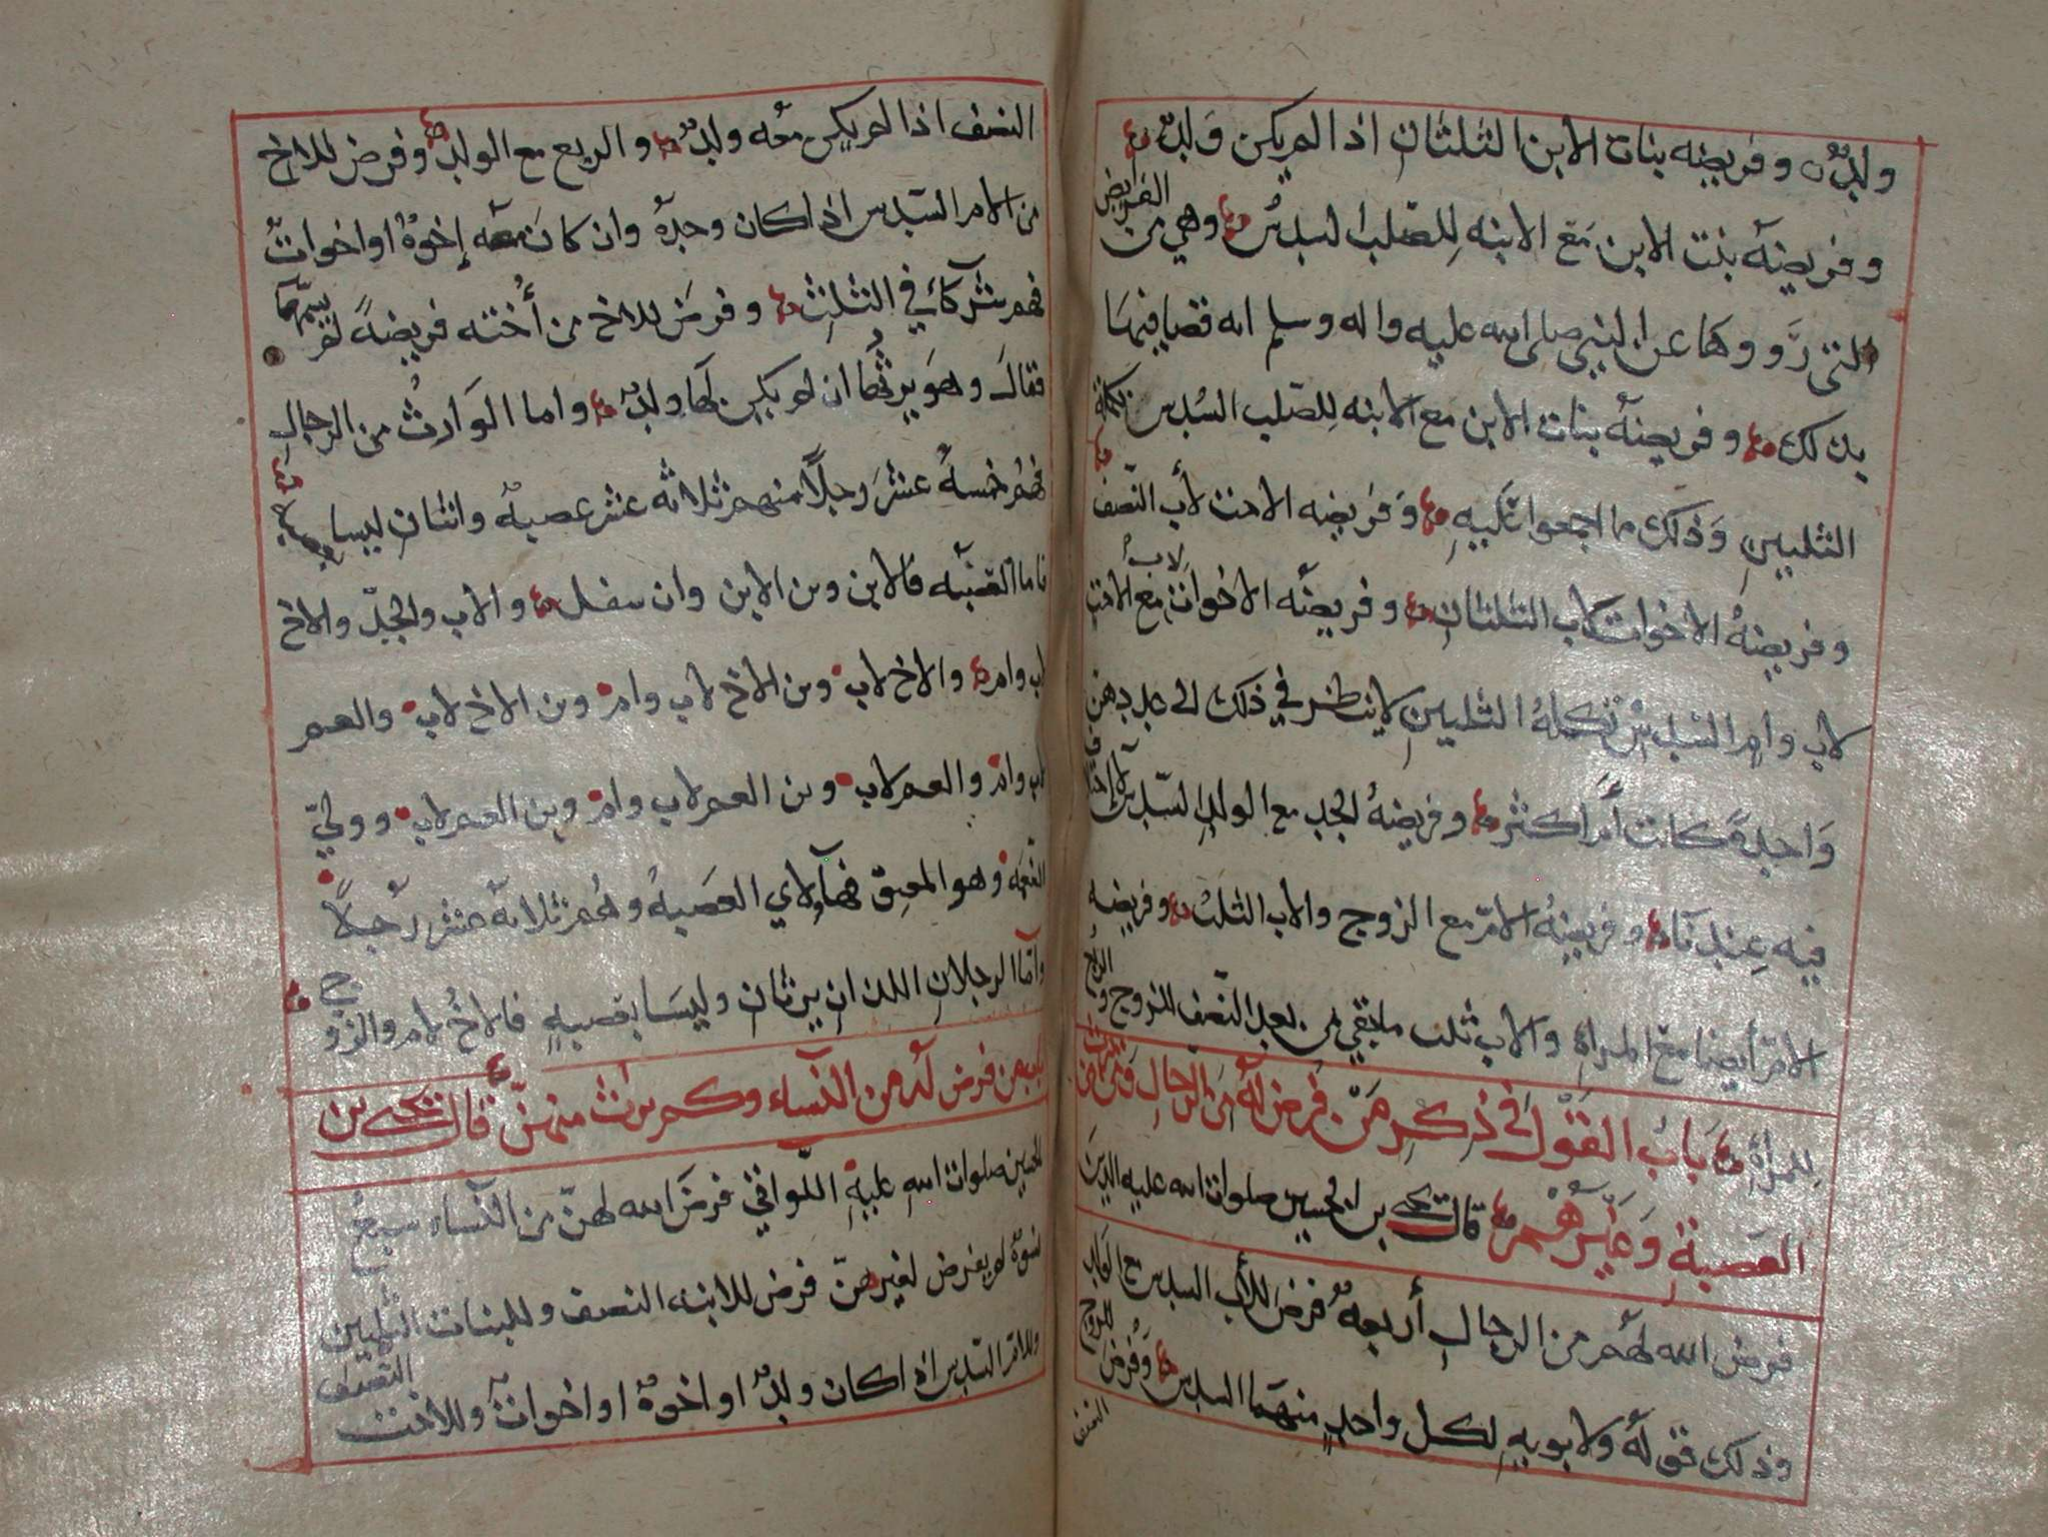 ولد وفريضه بنات الابن الثلثان اذا لم يكن ولد
وفريضة بنت الابن مع الابنه للصلب السدس وهي من الفرايض
التى رووها عن النبي صلى الله عليه واله وسلم انه قضا فيها
بذلك وفريضة بنات الابن مع الابنه للصلب السدس تكملة
الثلثين وذلك ما اجمعوا عليه وفريضه الاخت لأب النصف
وفريضة الاخوات لاب الثلثان وفريضة الاخوات لاب مع الاخت
لاب وام السدس تكملة الثلثين لا ينظر في ذلك الى عددهن
واحدة كانت أم اكثر وفريضة الجد مع الولد السدس لا اختلاف
فيه عندنا وفريضة الام مع الزوج والاب الثلث وفريضه
الام أيضا مع المراة والاب ثلث ما بقي من بعد النصف للزوج والربع
للمرأة باب القول في ذكر من فرض له من الرجال وذكر
العصبة وغيرهم قال يحيى بن الحسين صلوات الله عليه الذين
فرض الله لهم من الرجال أربعة فرض للأب السدس مع الولد
وذلك قوله ولابويه لكل واحد منهما السدس وفرض للزوج
النصف
النصف اذا لم يكن معه ولد والربع مع الولد وفرض للاخ
من الام السدس اذا كان وحده وان كان معه إخوة او اخوات
فهم شركآء في الثلث وفرض للاخ من أخته فريضة لم يسمها
فقال وهو يرثها ان لم يكن لها ولد واما الوارث من الرجال
فهم خمسة عشر رجلا منهم ثلاثه عشر عصبة واثنان ليسا بعصبة
فاما العصبه فالابن وبن الابن وان سفل والاب والجد والاخ
لاب وام والاخ لاب وبن الاخ لاب وام وبن الاخ لاب والعم
لاب وام والعم لاب وبن العم لاب وام وبن العم لاب وولي
النعمه وهو المعتق فهاؤلاي العصبة وهم ثلاثة عشر رجلا
وأما الرجلان اللذان يرثان وليسا بعصبه فالاخ لام والزوج
باب من فرض له من النسآء وكم يرث منهن قال يحيى بن
الحسين صلوات الله عليه اللواتي فرض الله لهن من النسآء سبع
نسوة لم يفرض لغيرهن فرض للابنه النصف وللبنات الثلثين
وللام السدس اذا كان ولد او اخوة او اخوات وللاخت النصف